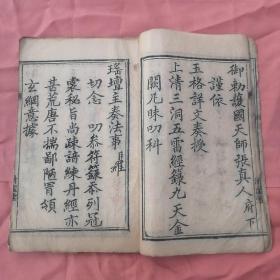 御勅護國天師張真人府下
謹依
玉格詳文奏授
上清三洞五雷經籙九天金
闕凡昧叨科
瑤壇主奏法事臣
切念 叨參符籙忝列冠
裳秘旨尚疎諳練丹經亦
甚荒唐不揣鄙陋冒領
玄綱意據